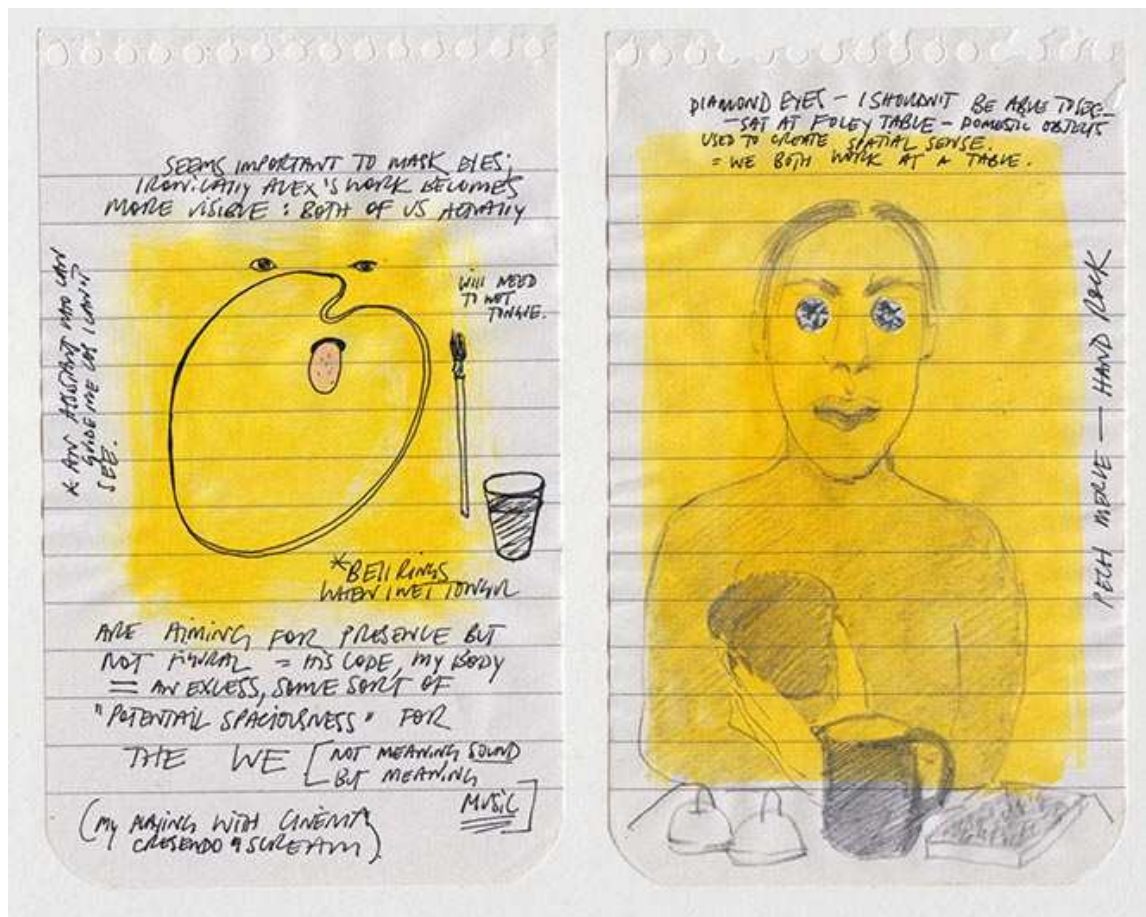 SEEMS IMPORTANT TO MASK EYES;
IRONICALLY ALEX'S WORK BECOMES
MORE VISIBLE : BOTH OF US ACTUALLY
* AN ASSISTANT WHO CAN
GUIDE ME (AS I CAN'T
SEE.
WILL NEED
TO WET
TONGUE.
*BELL RINGS
WHEN I WET TONGUE
ARE AIMING FOR PRESENCE BUT
NOT FIGURAL = HIS CODE, MY BODY
= AN EXCESS, SOME SORT OF
"POTENTAIL SPACIOUSNESS" FOR
THE WE [NOT MEANING SOUND
BUT MEANING
MUSIC]
(MY PLAYING WITH CINEMA
CRESENDO SCREAM)
DIAMOND EYES – I SHOULDN'T BE ABLE TO SEE
– SAT AT FOLEY TABLE – DOMESTIC OBJECTS
USED TO CREATE SPATIAL SENSE.
= WE BOTH WORK AT A TABLE.
PECH MERLE — HAND ROCK